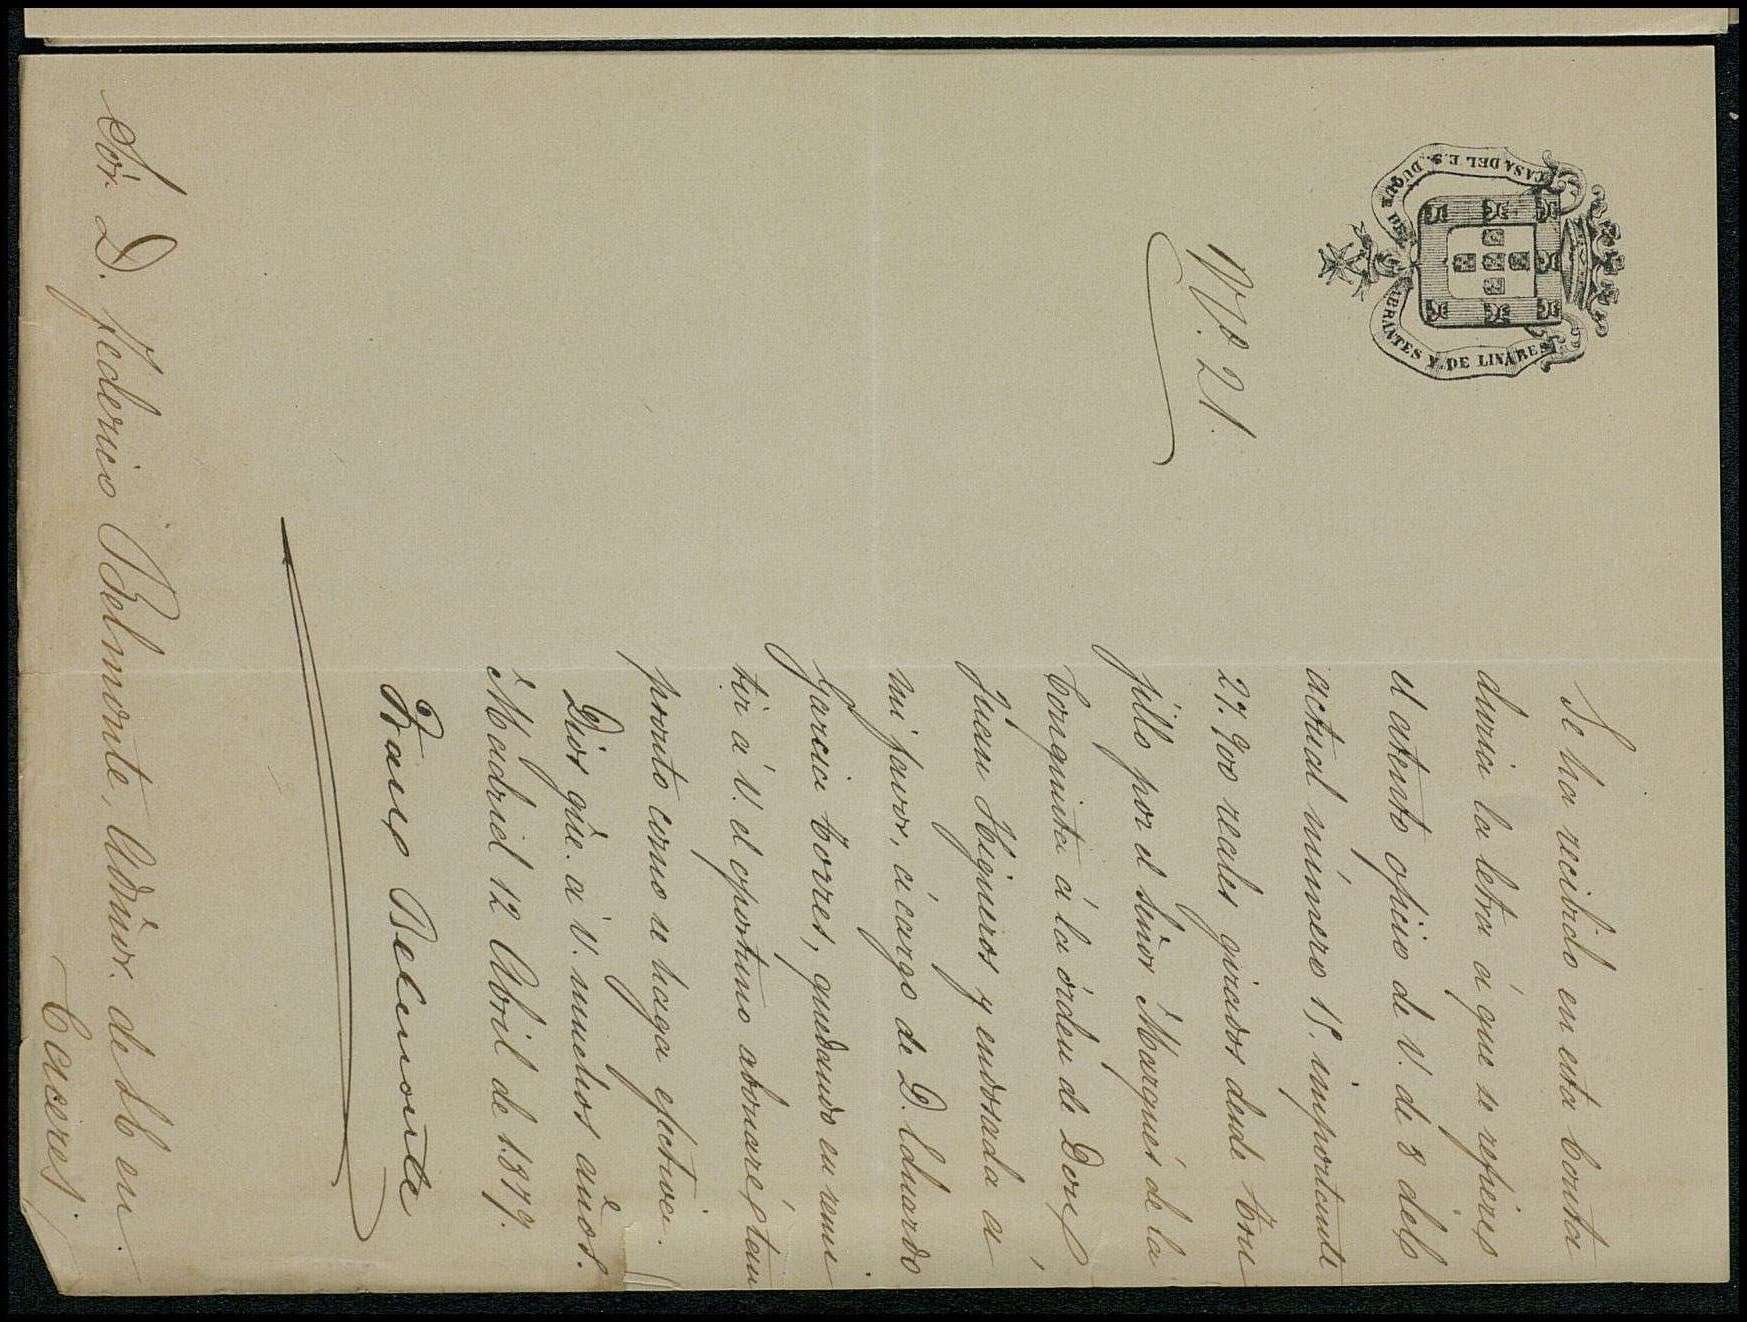 CASA DEL E. S. DUQUE DE ABRANTES Y DE LINARES
Nº. 21.
Se ha recibido en esta Conta
duria la letra á que se refiere
el atento oficio de V. de 8 del
actual número 15. importante
27.900 reales girados desde Tru
jillo por el Señor Marqués de la
Conquista á la órden de Don
Juan Higueros y endosada á
mi favor, á cargo de D. Eduardo
Garcia Torres, quedando en remi
tir á V. el oportuno abonaré, tan
pronto como se haga efectiva.
Dios gûe. á V. muchos años.
Madrid 12 Abril de 1879.
Belmonte
Sor. D. Federico Belmonte, Admor. de S.E. en
Caceres,